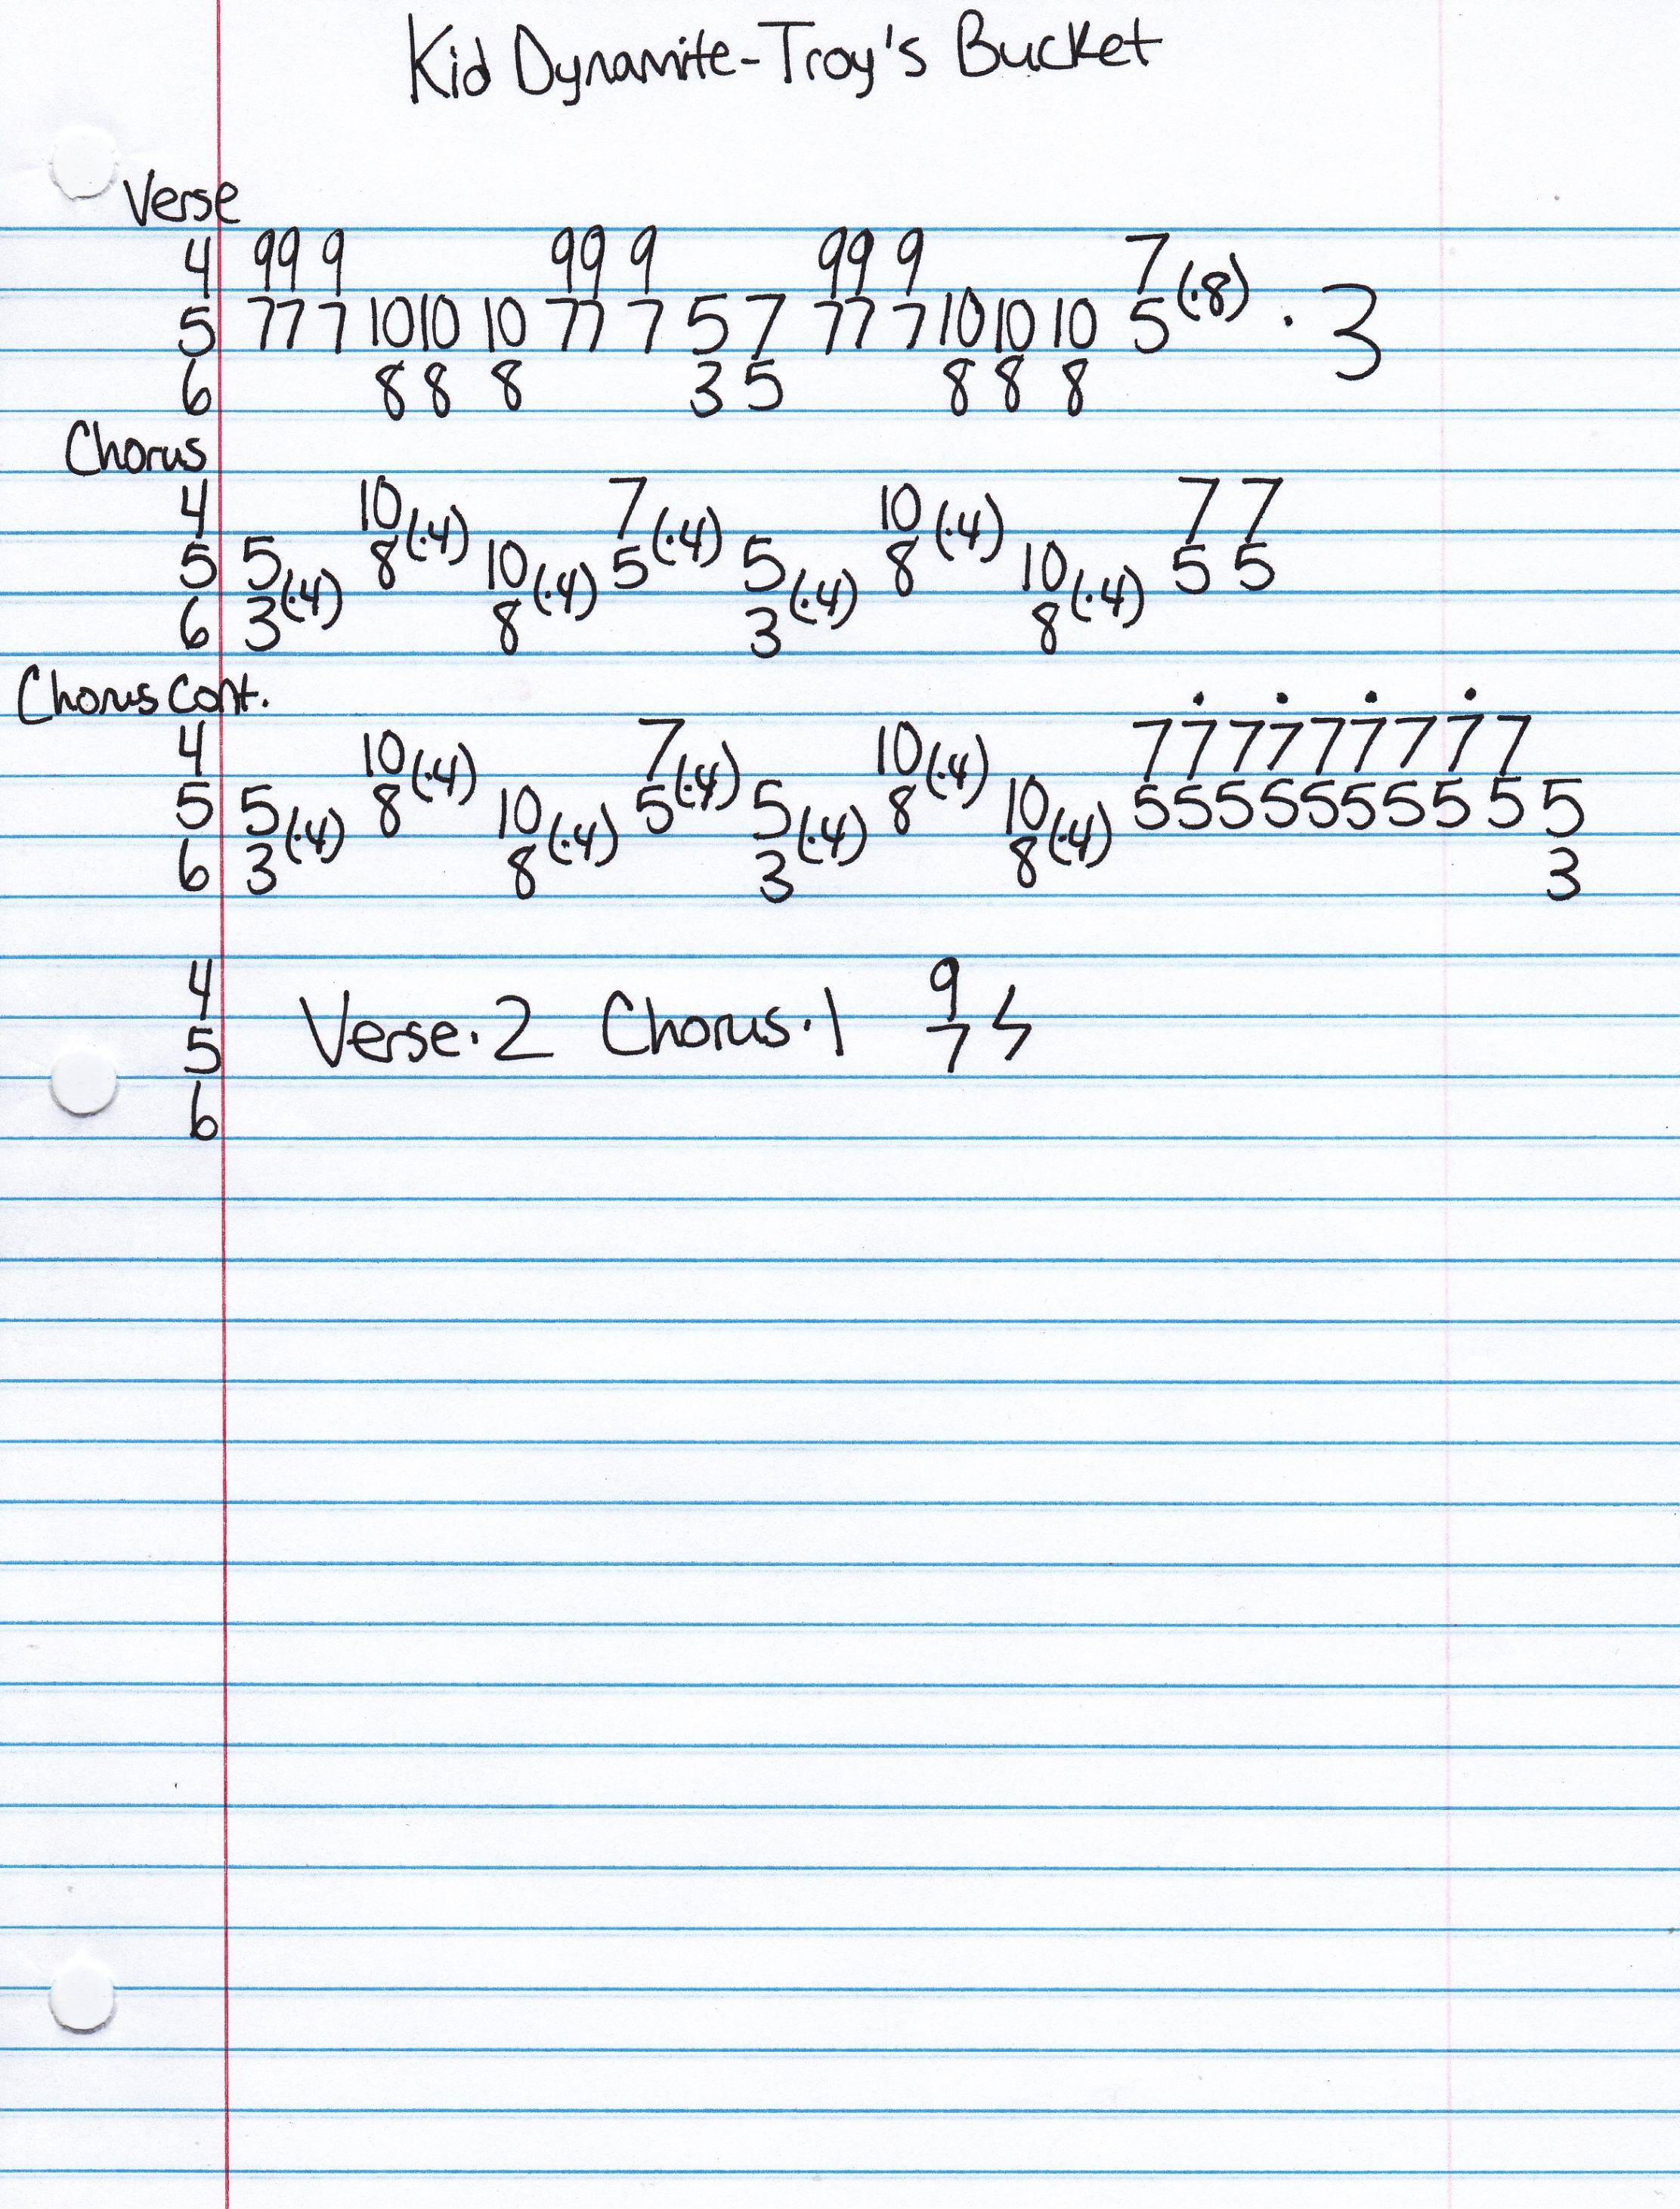 Kid Dynamite-Troy's Bucket
Verse
4 99 9 99 9 99 9 7
5 77 7 1010 10 77 7 5 7 77 7 10 10 10 5 (·8) · 3
6 8 8 8 3 5 8 8 8
Chorus
4 10 (·4) 7 (·4) 10 (·4) 7 7
5 5 (·4) 8 10 (·4) 5 5 (·4) 8 10 (·4) 5 5
6 3 8 3 8
Chorus Cont.
4 10 (·4) 7 (·4) 10 (·4) 7 7 7 7 7 7 7 7 7
5 5 (·4) 8 10 (·4) 5 5 (·4) 8 10 (·4) 5 5 5 5 5 5 5 5 5 5
6 3 8 3 8 3
4 9
5 Verse·2 Chorus·1 7
6